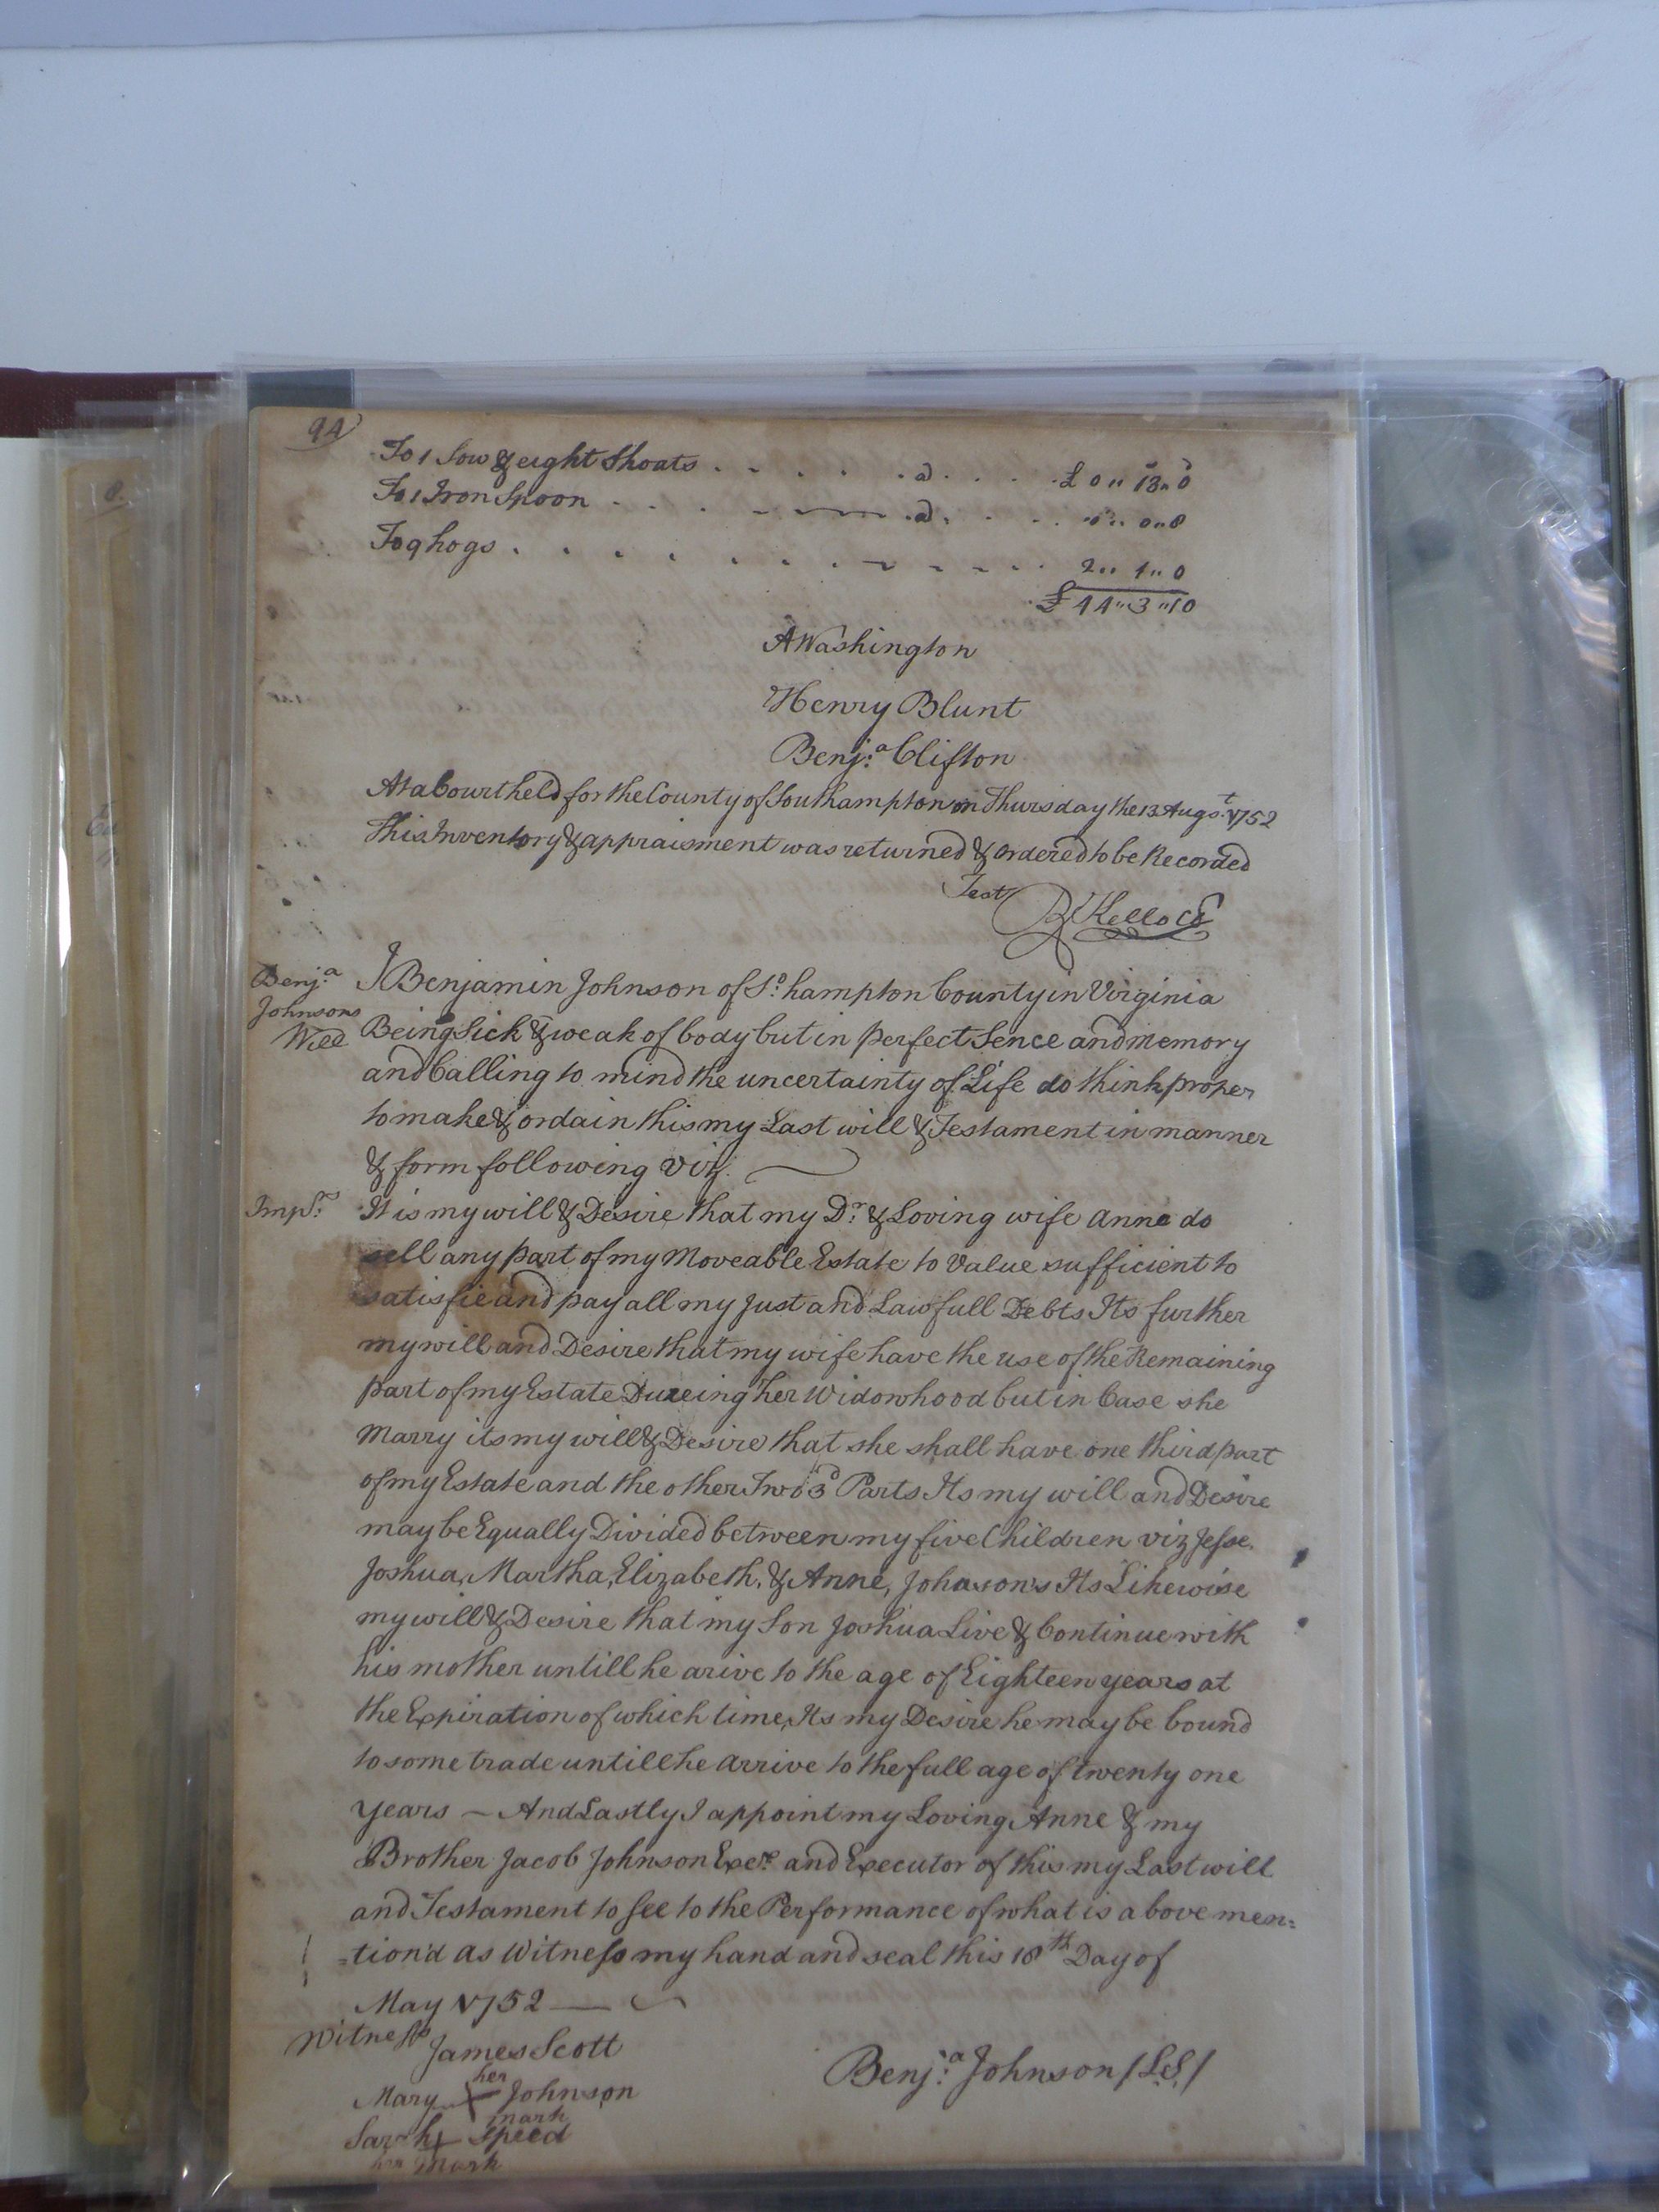 94
To 1 Sow & eight Shoats . . . . . a . . . £ 0 " 13 " 0
To 1 Iron Spoon . . . . a . . . 0 " 0 " 8
To 9 hogs . . . . . . . . . 2 " 1 " 0
£ 44 " 3 " 10
AWashington
Henry Blunt
Benj:a Clifton
At a Court held for the County of Southampton on Thursday the 13 Augst 1752
This Inventory & appraisment was returned & ordered to be Recorded
Test
R Kello CS
Benj:a
Johnsons
Will
I Benjamin Johnson of So:hampton County in Virginia
Being Sick & weak of body but in perfect Sence and memory
and Calling to mind the uncertainty of Life do think proper
to make & ordain this my Last will & Testament in manner
& form following Viz.
Imprs: It is my will & Desire that my Dr: & Loving wife Anne do
sell any part of my Moveable Estate to Value sufficient to
satisfie and pay all my Just and Lawfull Debts Its further
my will and Desire that my wife have the use of the Remaining
part of my Estate Dureing her Widowhood but in Case she
Marry its my will & Desire that she shall have one third part
of my Estate and the other Two 3d Parts Its my will and Desire
may be Equally Divided between my five Children viz Jesse,
Joshua, Martha, Elizabeth, & Anne, Johnson's Its Likewise
my will & Desire that my Son Joshua Live & Continue with
his mother untill he arive to the age of Eighteen years at
the Expiration of which time, Its my Desire he may be bound
to some trade untill he arrive to the full age of twenty one
years — And Lastly I appoint my Loving Anne & my
Brother Jacob Johnson Exex and Executor of this my Last will
and Testament to see to the Performance of what is above men=
=tion'd as Witness my hand and seal this 18th Day of
May 1752
Witness
James Scott
Mary her Johnson
mark
Sarah Speed
her mark
Benj:a Johnson /L.S./